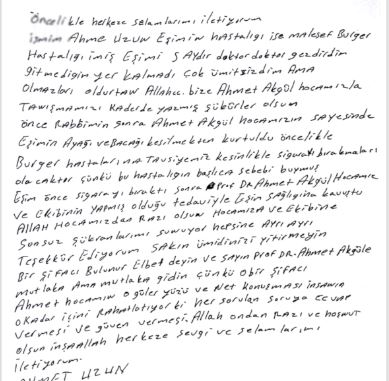 Öncelikle herkeze selamlarımı iletiyorum
ismim Ahme Uzun Eşimin hastalığı ise malesef Burger
Hastalığı imiş Eşimi 5 Aydır doktor doktor gezdirdim
gitmediğim yer kalmadı çok ümitsizdim Ama
Olmazları oldurtan Allahcc. bize Ahmet Akgül hocamızla
Tanışmamızı kaderde yazmış şükürler olsun
önce Rabbimin sonra Ahmet Akgül hocamızın sayesinde
Eşimin Ayağı ve Bacağı kesilmekten kurtuldu öncelikle
Burger hastalarına Tavsiyemiz kesinlikle sigarayı bırakmaları
olacaktır çünkü bu hastalığın başlıca sebebi buymuş
Eşim önce sigarayı bıraktı sonra Prof DR Ahmet Akgül Hocamız
ve Ekibinin yapmış olduğu tedaviyle Eşim sağlığına kavuştu
Allah Hocamızdan Razı olsun Hocamıza ve Ekibine
Sonsuz şükranlarımı sunuyor hepsine Ayrı Ayrı
Teşekkür Ediyorum sakın ümidinizi yitirmeyin
Bir şifacı Bulunur Elbet deyin ve sayın Prof DR. Ahmet Akgüle
mutlaka Ama mutlaka gidin çünkü o bir şifacı
Ahmet hocamın o güler yüzü ve Net konuşması insanın
o kadar işini rahatlatıyor ki her sorulan soruya cevap
vermesi ve güven vermesi. Allah ondan Razı ve hoşnut
olsun inşaAllah herkeze sevgi ve selamlarımı
iletiyorum.
AHMET UZUN